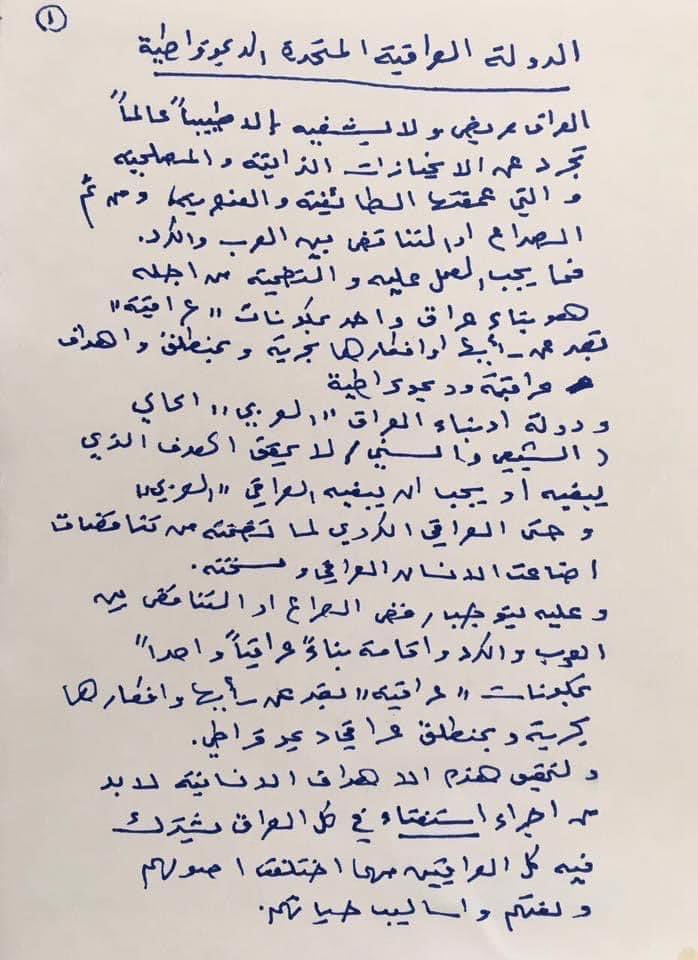 ١
الدولة العراقية المتحدة الديموقراطية
العراق مريض ولا يشفيه إلا طبيباً عالماً
تجرد عن الانحيازات الذاتية والمصلحية
والتي عمقتها الطائفية والعنصرية ومن ثم
الصراع او التناقض بين العرب والكرد.
فما يجب العمل عليه والتضحية من اجله
هو بناء عراق واحد بمكونات "عراقية"
تعبر عن رأيها وافكارها بحرية وبمنطلق واهداف
عراقية وديموقراطية
ودولة ادباء العراق "العربي" الحالي
(الشيعي والسني) لا يحقق الهدف الذي
يبغيه او يجب ان يبغيه العراقي "العربي"
وحتى العراقي الكردي لما تضمنته من تناقضات
اضاعت الانسان العراقي و
وعليه يتوجب رفض الصراع او التناقض بين
العرب والكرد واقامة بناءً عراقياً واحداً
بمكونات "عراقية" تعبر عن رأيها وافكارها
بحرية وبمنطلق عراقي ديموقراطي.
ولتحقيق هذه الاهداف الانسانية لابد
من اجراء استفتاء في كل العراق يشترك
فيه كل العراقيين مهما اختلفت اصولهم
ولغتهم واساليب حياتهم.